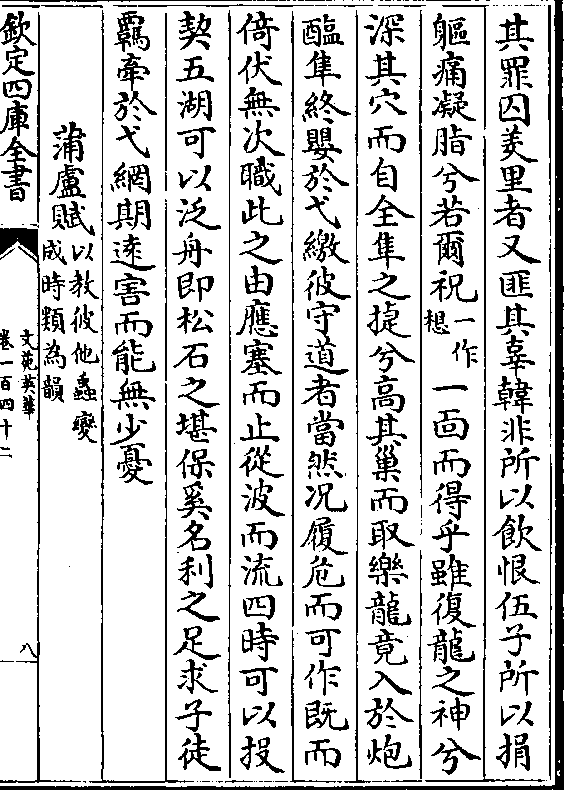 其罪囚羑里者又匪其辜韓非所以飲恨伍子所以捐
軀痛凝脂兮若爾祝一作想一面而得乎雖復龍之神兮
深其穴而自全隼之㨗兮高其巢而取樂龍竟入於炮
醢隼終嬰於弋繳彼守道者當然况履危而可作既而
倚伏無次職此之由應塞而止從波而流四時可以投
契五湖可以泛舟即松石之堪保奚名利之足求子徒
羈牽於弋網期逺害而能無少憂
蒲盧賦以教彼他蟲變成時類為韻
欽定四庫全書
文苑英華
卷一百四十二
八